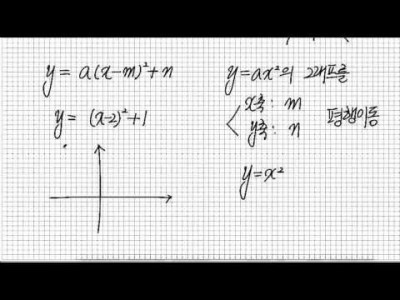 y = a(x-m)²+n
y = (x-2)²+1
y=ax²의 그래프를
x축: m
y축: n
평행이동
y=x²